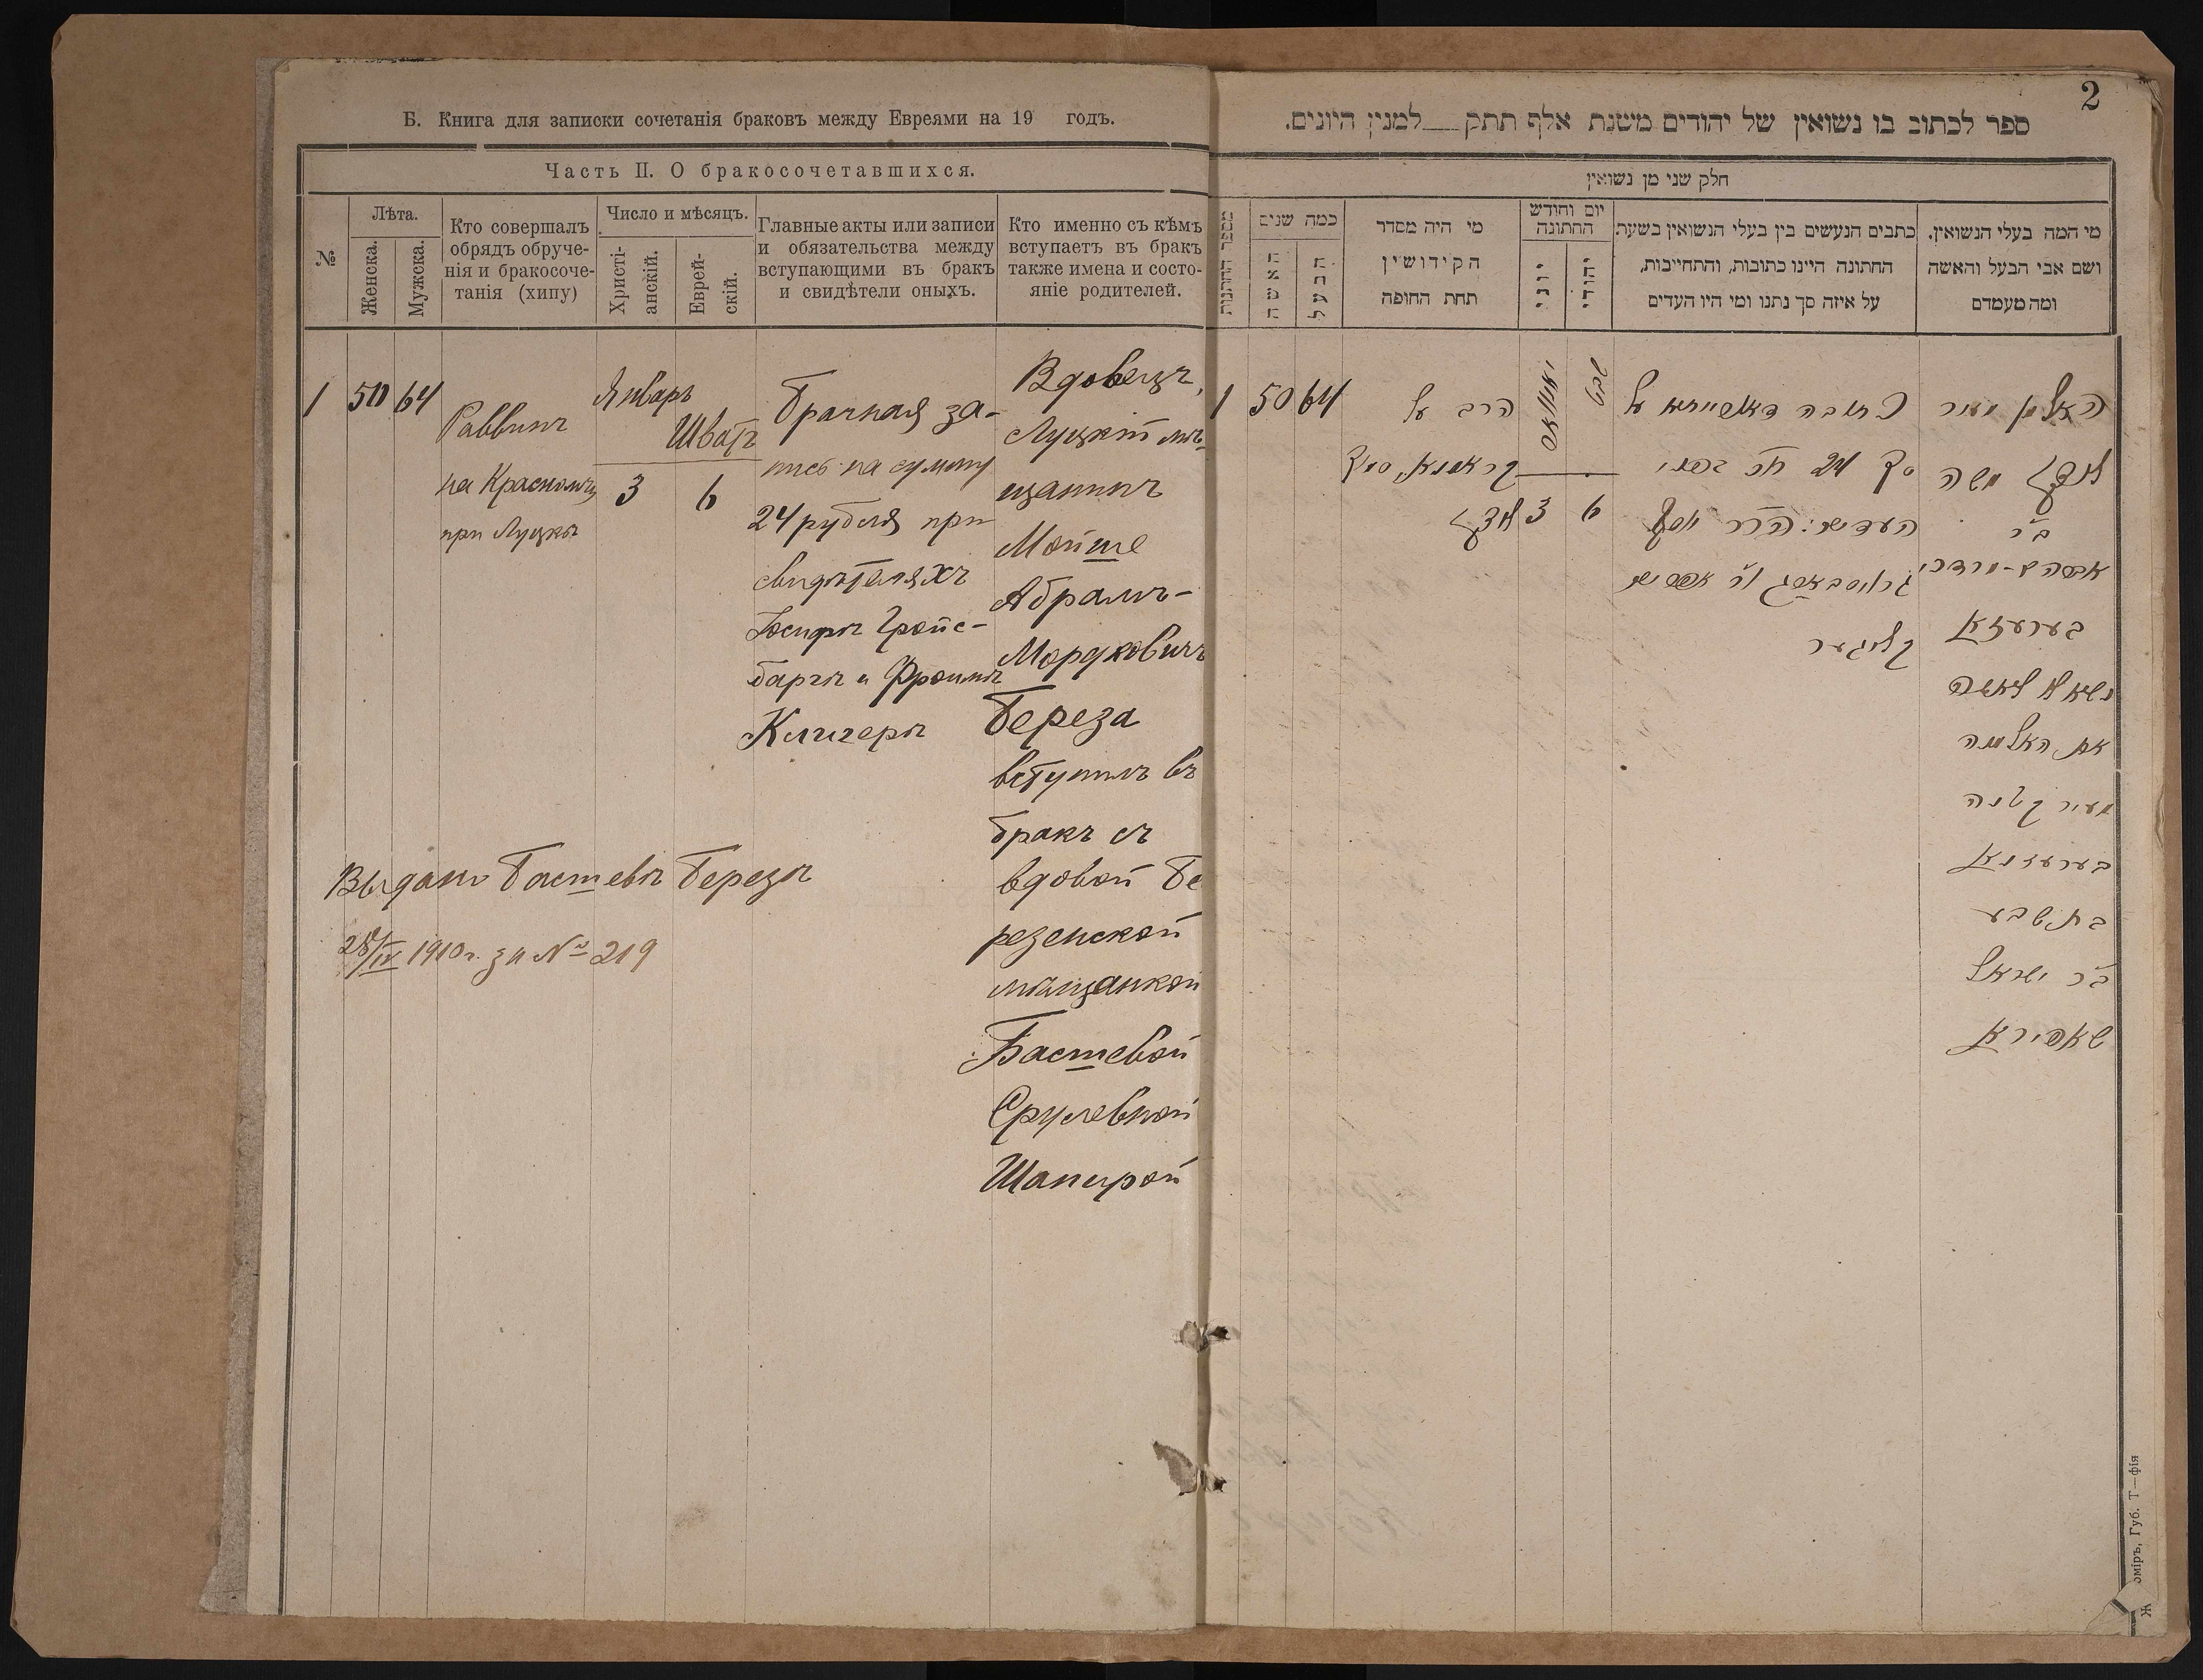 Б. Книга для записки сочетанія браковъ между Евреями на 19 годъ.
Часть II. О бракосочетавшихся.
№
Лѣта.
Женска.
Мужска.
Кто совершалъ
обрядъ обруче-
нія и бракосоче-
танія (хипу)
Число и мѣсяцъ.
Христі-
анскій.
Еврей-
скій.
Главные акты или записи
и обязательства между
вступающими въ бракъ
и свидѣтели оныхъ.
Кто именно съ кѣмъ
вступаетъ въ бракъ
также имена и состо-
яніе родителей.
1
50
64
Раввинъ
на Красномъ
при Луцкѣ
Январь
Шватъ
3
6
Брачная за-
пись на сумму
24 рубля при
свидѣтеляхъ
Іосифѣ Гройс-
баргѣ и Фроимѣ
Клигерѣ
Вдовецъ,
Луцкій мѣ-
щанинъ
Мойше
Абрамъ-
Мордковичъ
Береза
вступилъ въ
бракъ съ
вдовой Бе
резенской
мѣщанкой
Басшевой
Срулевной
Шапирой
Выдано Басшевѣ Березѣ
28/IV 1910 г. за № 219
2
ספר לכתוב בו נשואין של יהודים משנת אלף תתק למנין היונים.
חלק שני מן נשואין
מספר החתנות
כמה שנים
האשה
הבעל
מי היה מסדר
הקידושין
תחת החופה
יום וחודש
החתונה
יוני
יהודי
כתבים הנעשים בין בעלי הנשואין בשעת
החתונה היינו כתובות, והתחייבות,
על איזה סך נתנו ומי היו העדים
מי המה בעלי הנשואין.
ושם אבי הבעל והאשה
ומה מעמדם
1
50
64
הרב על
קראסנא, סמוך
לוצק
יאנואר
שבט
3
6
כתובה דאטייטא על
סך 24
העדים: ה"ה יוסף
קליגער
האלמן מעיר
לוצק משה
ב"ר
אברהם-מרדכי
בערעזא
נשא לאשה
את האלמנה
מעיר קטנה
בערעזנא
בת שבע
ב"ר ישראל
שאפירא
Ж омiръ, Губ. Т—фія